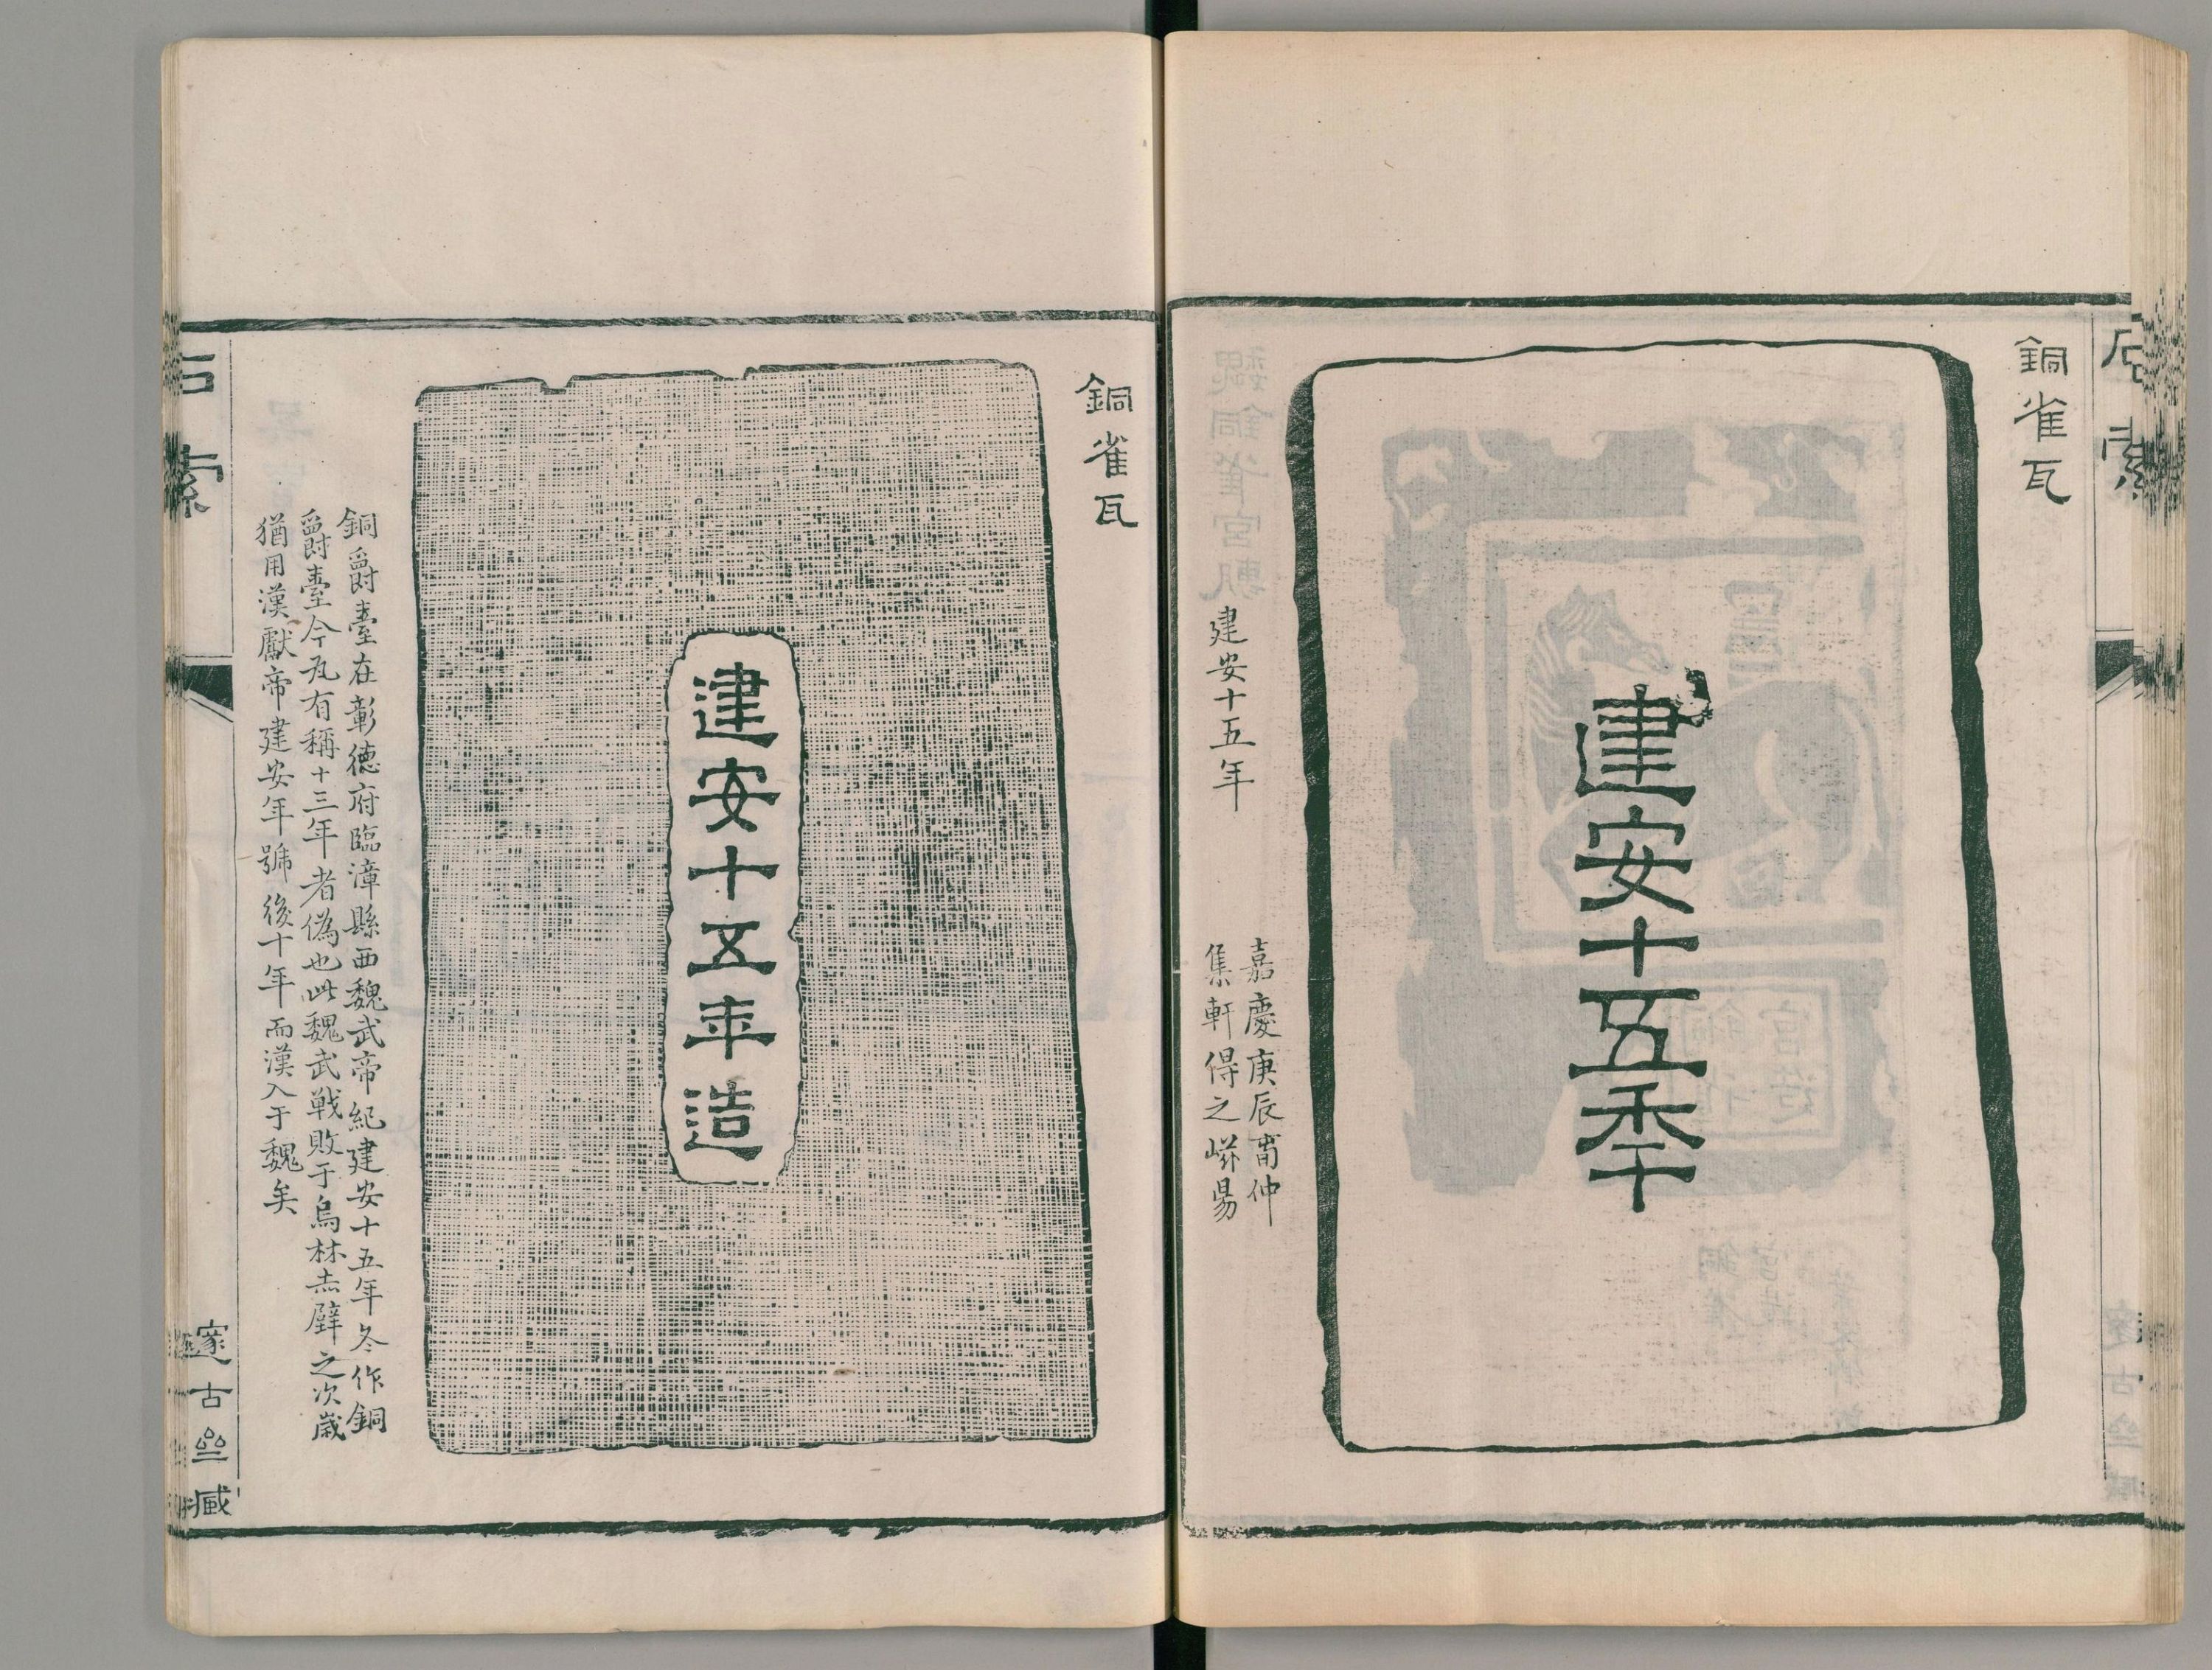 石索
銅雀瓦
建安十五秊
建安十五年
嘉慶庚辰
仲
集軒得之嶧昜
銅雀瓦
建安十五年造
銅爵臺在彰德府臨漳縣西魏武帝紀建安十五年冬作銅
爵臺今瓦有稱十三年者偽也此魏武戰敗于烏林赤壁之次歲
猶用漢獻帝建安年號後十年而漢入于魏矣
石索
邃古
臧